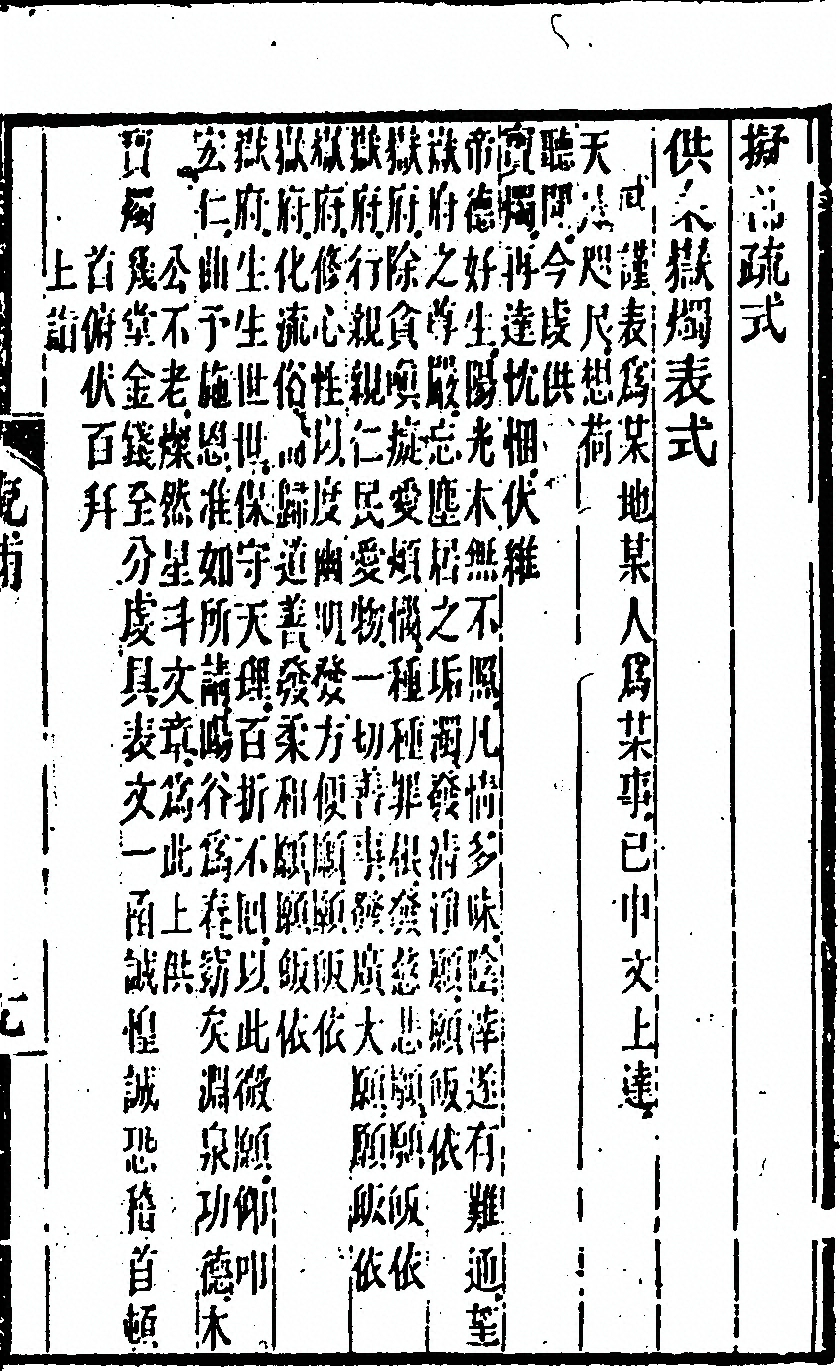 擬疏式
供獄燭表式
謹表爲某地某人爲某事已申文上達
天咫尺想荷
聽聞今虔供
寶燭再達忱悃伏維
帝德好生陽光木無不照凡情多昧陰滓遂有難通望
嶽府之尊嚴忘塵居之垢濁發清淨願願皈依
嶽府除貪嗔癡愛煩惱種種罪根發慈悲願願皈依
嶽府行親親仁民愛物一切善事發廣大願願皈依
嶽府修心性以度幽明發方便願願皈依
嶽府化流俗歸道善發柔和願願皈依
嶽府生生世世保守天理百折不回以此微願仰叩
宏仁曲予施恩准如所請暘谷爲春窈矣淵泉功德木
公不老燦然星斗文章爲此上供
寶燭幾堂金錢至分虔具表文一函誠惶誠恐稽首頓
首俯伏百拜
上詣